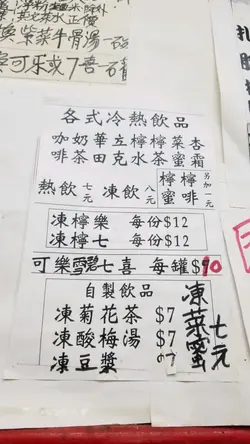 紫菜牛骨湯一碗
可乐或7喜一
各式冷熱飲品
咖啡
奶茶
華田
立克
檸水
檸茶
菜蜜
杏霜
熱飲 七元
凍飲 八元
檸蜜
檸啡
另加一元
凍檸樂 每份$12
凍檸七 每份$12
可樂雪碧七喜 每罐$10
自製飲品
凍菊花茶 $7
凍酸梅湯 $7
凍豆漿
凍菜蜜
七元